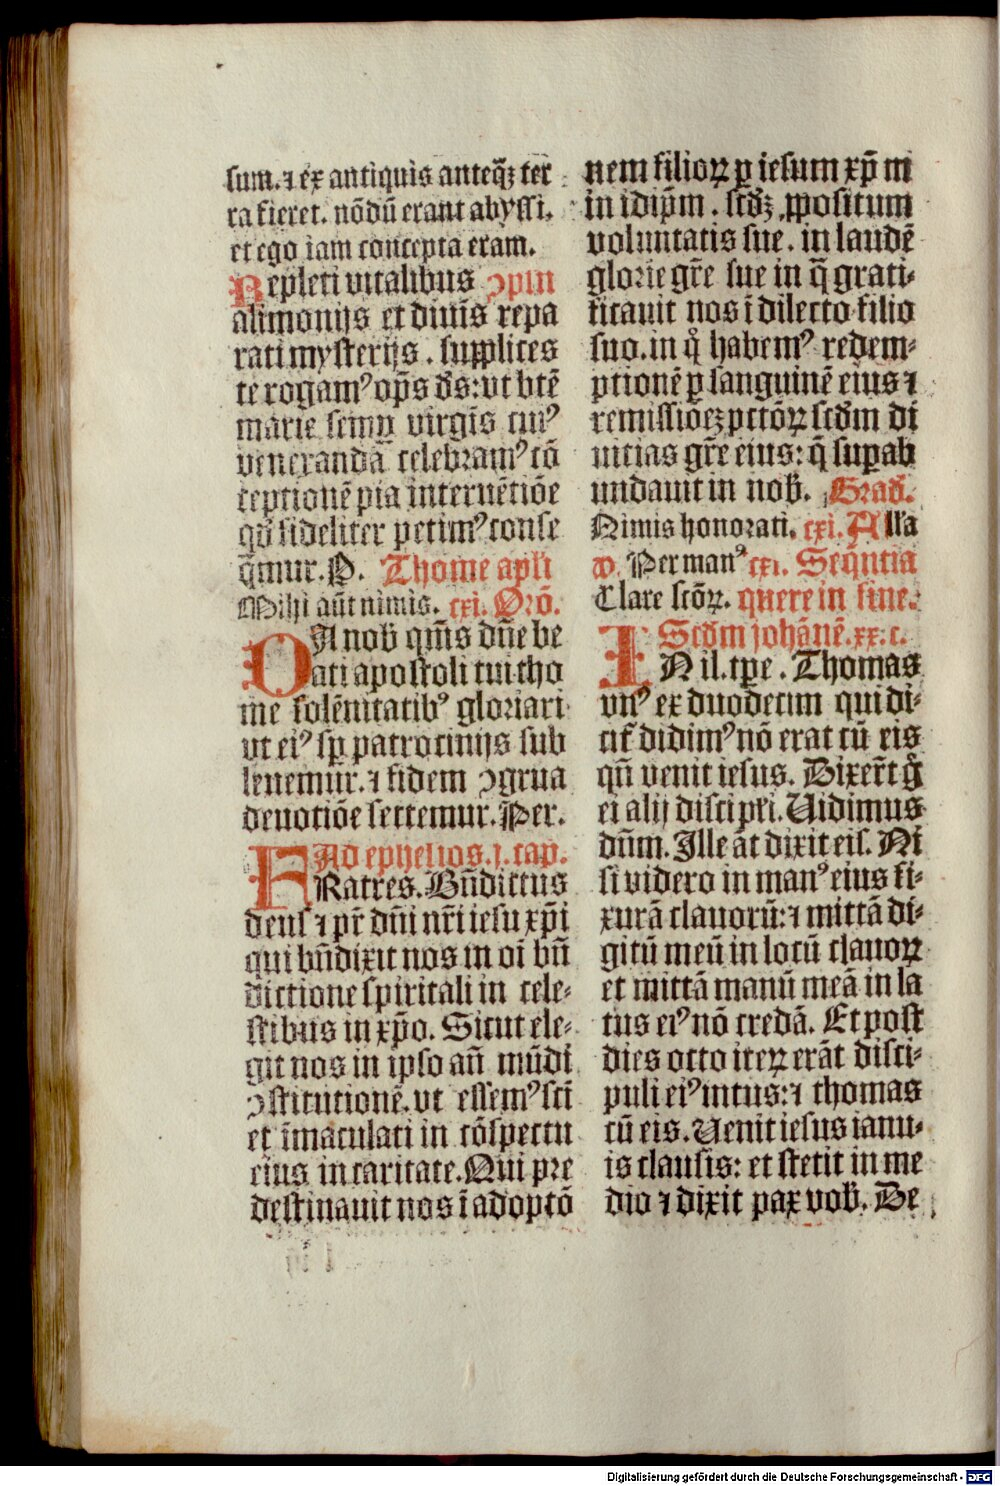 sum. ⁊ ex antiquis anteq̃ꝫ ter
ra fieret. nõdũ erant abyssi.
et ego iam concepta eram.
Repleti vitalibus ꝯplň
alimonijs et diuĩs repa
rati mysterijs. supplices
te rogamꝰ op̃s ds̃: vt btẽ
marie semꝑ virgĩs cuiꝰ
venerandã celebramꝰ cõ
ceptionẽ pia interuẽtiõe
qď fideliter petimꝰ conse
q̃mur. P. Thome apľi
Mihi aũt nimis. cxi. Orõ.
DA nob̃ qm̃s dñe be
ati apostoli tui tho
me solẽnitatibꝰ gloriari
vt eiꝰ sꝑ patrocinijs sub
leuemur. ⁊ fidem ꝯgrua
deuotiõe sectemur. Per.
Ad ephesios. j. cap.
FRatres. Bñdictus
deus ⁊ pr̃ dñi nr̃i iesu xp̃i
qui bñdixit nos in oĩ bñ
dictione spiritali in cele-
stibus in xp̃o. Sicut ele-
git nos in ipso añ mũdi
ꝯstitutionẽ. vt essemꝰ scĩ
et ĩmaculati in cõspectu
eius in caritate. Qui pre
destinauit nos ĩ adoptõ
nem filioꝝ ꝑ iesum xp̃m
in idip̃m. scďꝫ ꝓpositum
voluntatis sue. in laudẽ
glorie gr̃e sue in q̃ grati-
ficauit nos ĩ dilecto filio
suo. in qͦ habemꝰ redem-
ptionẽ ꝑ sanguinẽ eius ⁊
remissioẽꝫ pctõꝝ scďm di
uitias gr̃e eius: q̃ suꝑab
undauit in nob̃. Grad̃.
Nimis honorati. cxi. Alľa
v. Per manꝰ cxi. Seq̃ntia
Clare scõꝝ. quere in fine.
Scďm johãnẽ. xx. c.
IN il. tꝑe. Thomas
vnꝰ ex duodecim qui di-
cit̃ didimꝰ nõ erat cũ eis
qñ venit iesus. Dixer̃t gͦ
ei alij discipľi. Uidimus
dñm. Ille ãt dixit eis. Ni
si videro in manꝰ eius fi-
xurã clauorũ: ⁊ mittã di-
gitũ meũ in locũ clauoꝝ
et mittã manũ meã in la
tus eiꝰ nõ credã. Et post
dies octo iteꝝ erãt disci-
puli eiꝰ intus: ⁊ thomas
cũ eis. Uenit iesus ianu-
is clausis: et stetit in me
dio ⁊ dixit pax vob̃. De
Digitalisierung gefördert durch die Deutsche Forschungsgemeinschaft - DFG